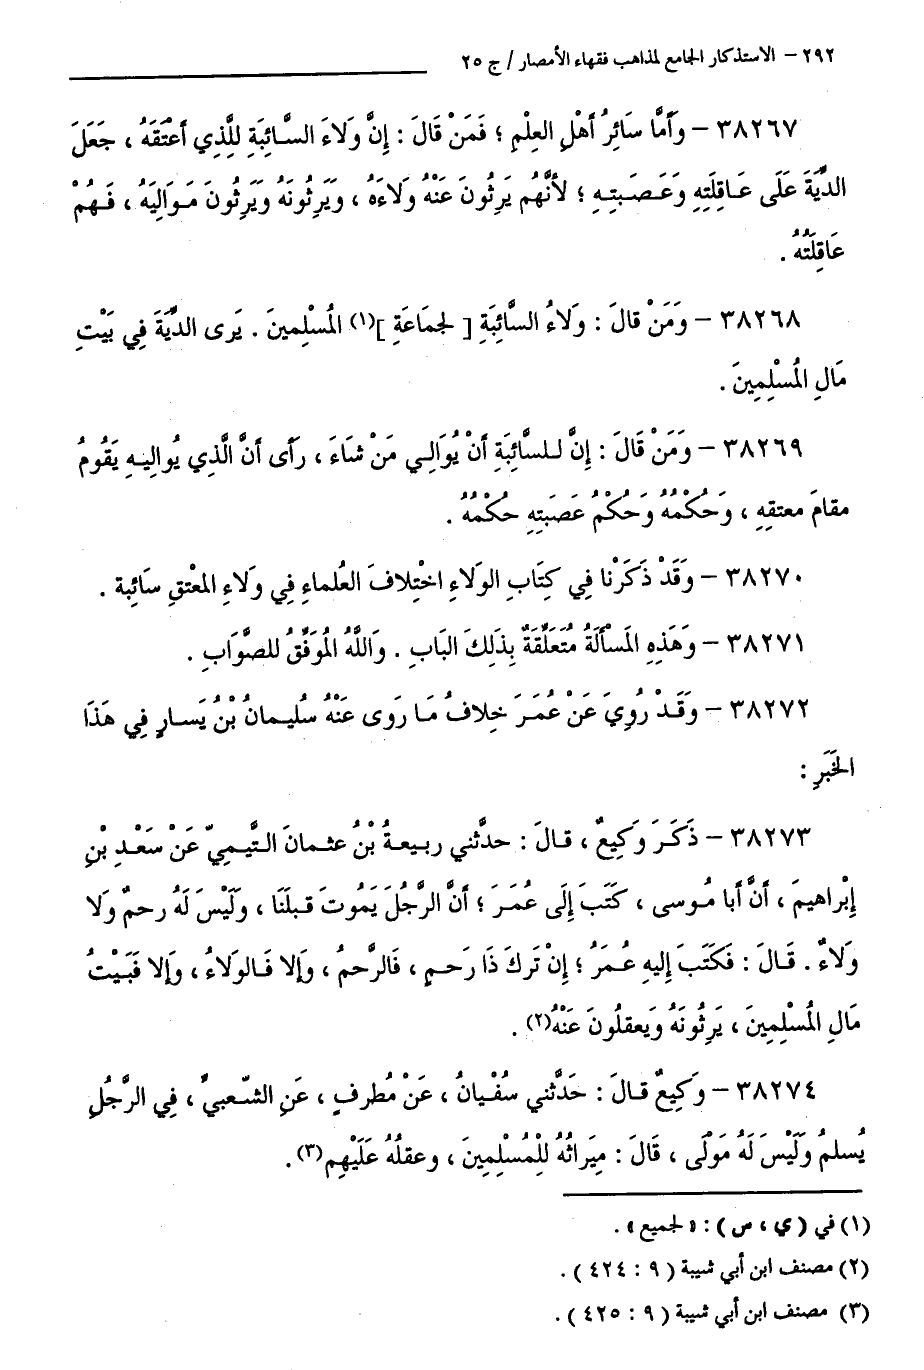 ٢٩٢ – الاستذكار الجامع لمذاهب فقهاء الأمصار / ج ٢٥
٣٨٢٦٧ – وَأَمَّا سَائِرُ أَهْلِ العِلْمِ ؛ فَمَنْ قَالَ : إِنَّ وَلاَءَ السَّائِبَةِ لِلَّذِي أَعْتَقَهُ ، جَعَلَ
الدِّيَةَ عَلَى عَاقِلَتِهِ وَعَصَبتِهِ ؛ لأَنَّهُم يَرِثُونَ عَنْهُ وَلاءَهُ ، وَيَرِثُونَهُ وَيَرِثُونَ مَوَالِيَهُ ، فَهُمْ
عَاقِلَتُهُ .
٣٨٢٦٨ – وَمَنْ قَالَ : وَلاَءُ السَّائِبَةِ [ لجمَاعَةِ ](١) المُسْلِمينَ . يَرى الدِّيَةَ فِي بَيْتِ
مَالِ المُسْلِمِينَ .
٣٨٢٦٩ – وَمَنْ قَالَ : إِنَّ لِلسَّائِبَةِ أَنْ يُوَالِي مَنْ شَاءَ ، رَأى أَنَّ الَّذي يُواليهِ يَقُومُ
مقامَ معتقِهِ ، وَحُكْمُهُ وَحُكْمُ عَصَبَتِهِ حُكْمُهُ .
٣٨٢٧٠ – وَقَدْ ذَكَرْنا فِي كِتَابِ الوَلاءِ اخْتِلافَ العُلماءِ فِي وَلاءِ المعْتقِ سَائِبة .
٣٨٢٧١ – وَهَذِهِ المَسْأَلَةُ مُتَعَلِّقَةٌ بِذَلِكَ البَابِ . وَاللَّهُ المُوَفِّقُ للصَّوَابِ .
٣٨٢٧٢ – وَقَدْ رُوِيَ عَنْ عُمَرَ خِلافُ مَا رَوى عَنْهُ سُليمانُ بْنُ يَسارٍ فِي هَذَا
الخَبَرِ :
٣٨٢٧٣ – ذَكَرَ وَكِيعٌ ، قالَ : حدثَّني ربيعةُ بْنُ عثمانَ التَّيميّ عَنْ سَعْدِ بْنِ
إِبْراهيمَ ، أَنَّ أبا مُوسى ، كَتَبَ إِلَى عُمَرَ ؛ أَنَّ الرَّجُلَ يَمُوتَ قبلَنَا ، وَلَيْسَ لَهُ رحمٌ وَلا
وَلاءٌ . قَالَ : فَكَتَبَ إِليهِ عُمَرُ ؛ إِنْ تركَ ذَا رَحمٍ ، فَالرَّحمُ ، وَإِلا فَالولاءُ ، وَإِلا فَبَيْتُ
مَالِ المُسْلِمِينَ ، يَرِثُونَهُ وَيَعقلُونَ عَنْهُ(٢) .
٣٨٢٧٤ – وَكِيعٌ قالَ : حَدثَّني سُفْيانُ ، عَنْ مُطرفٍ ، عَنِ الشّعبيِّ ، فِي الرَّجُلِ
يُسلمُ وَلَيْسَ لَهُ مَوْلَى ، قَالَ : مِيَراثُهُ لِلْمُسْلِمِينَ ، وعقلُهُ عَلَيْهِم(٣).
(١) في ( ي ، ص ) : « لجميع » .
(٢) مصنف ابن أبي شيبة ( ٩ : ٤٢٤ ) .
(٣) مصنف ابن أبي شيبة ( ٩ : ٤٢٥ ) .